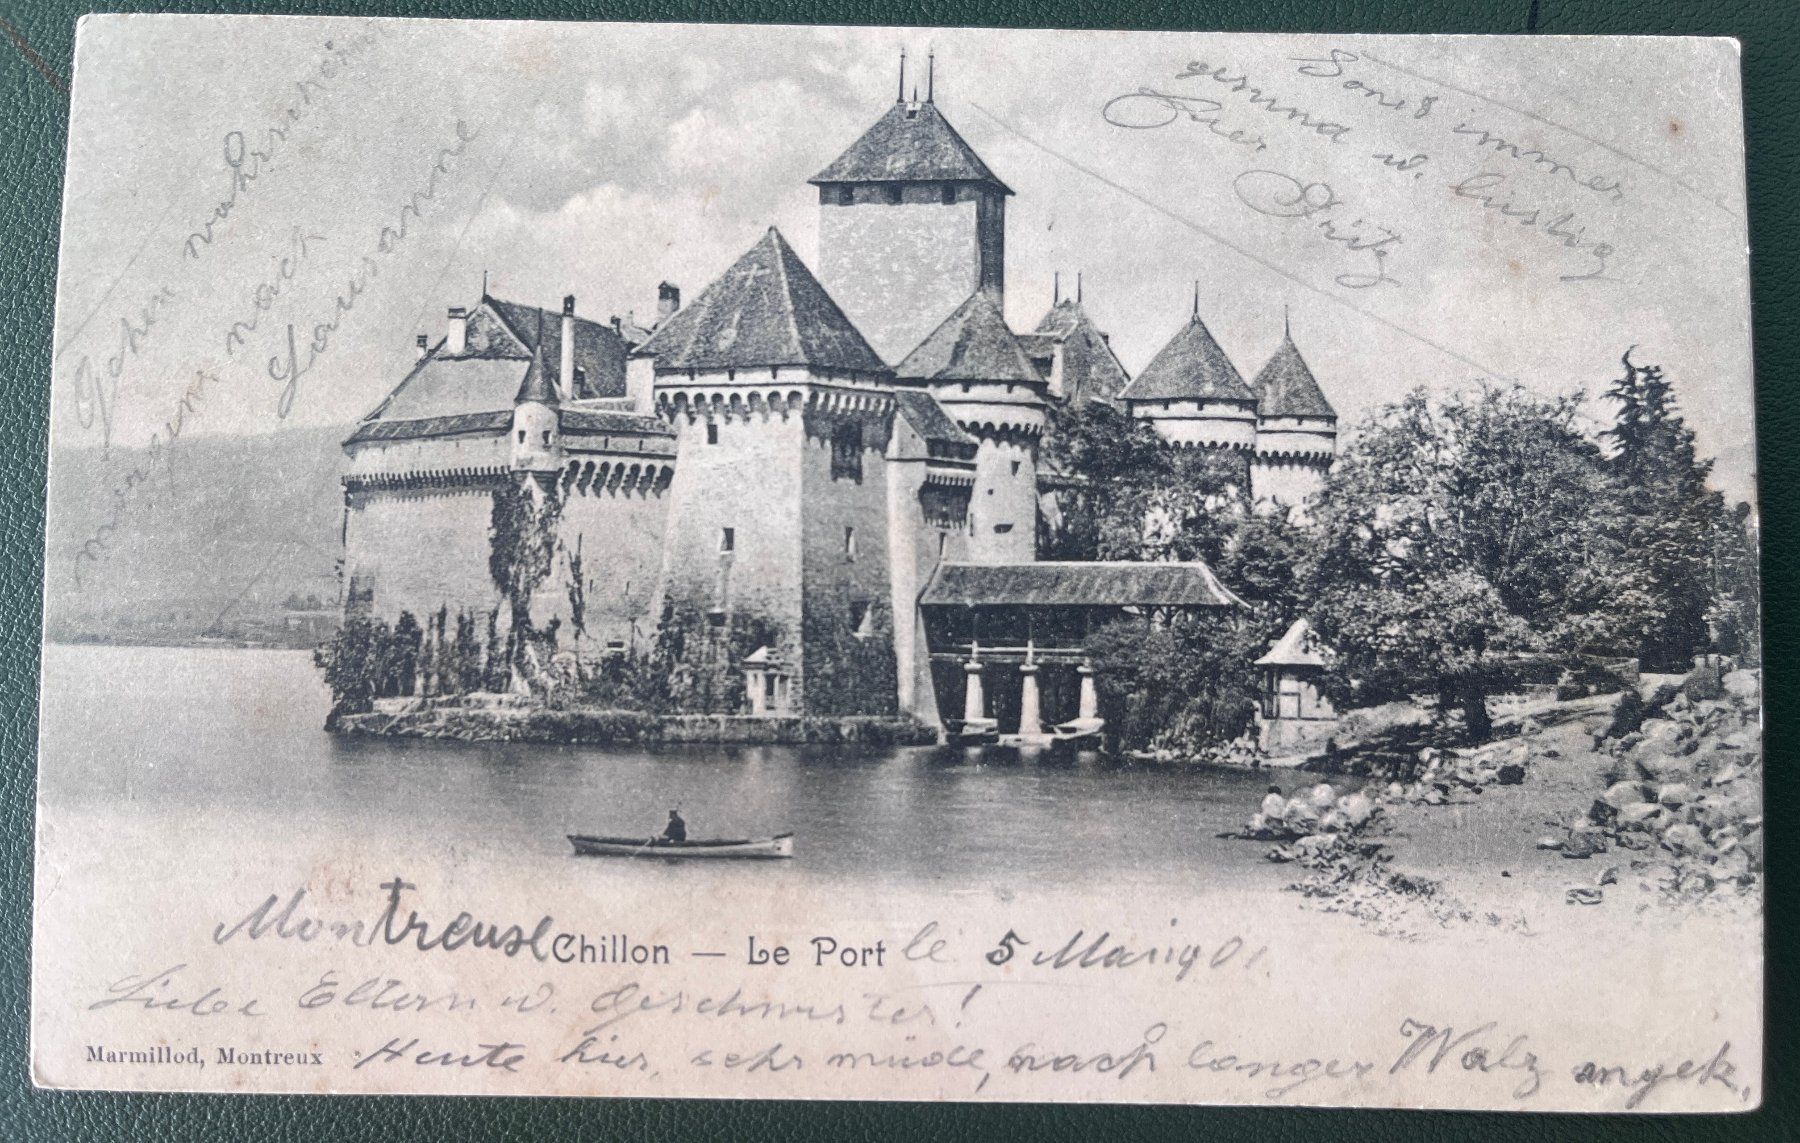 Montreux
Chillon — Le Port
le 5 Mai 1901.
Liebe Eltern u. Geschwister!
Marmillod, Montreux
Heute hier, sehr müde, nach langer Walz angek.
Gehen wahrschein
morgen nach
Lausanne
Sonst immer
gesund u. lustig
Euer
Fritz